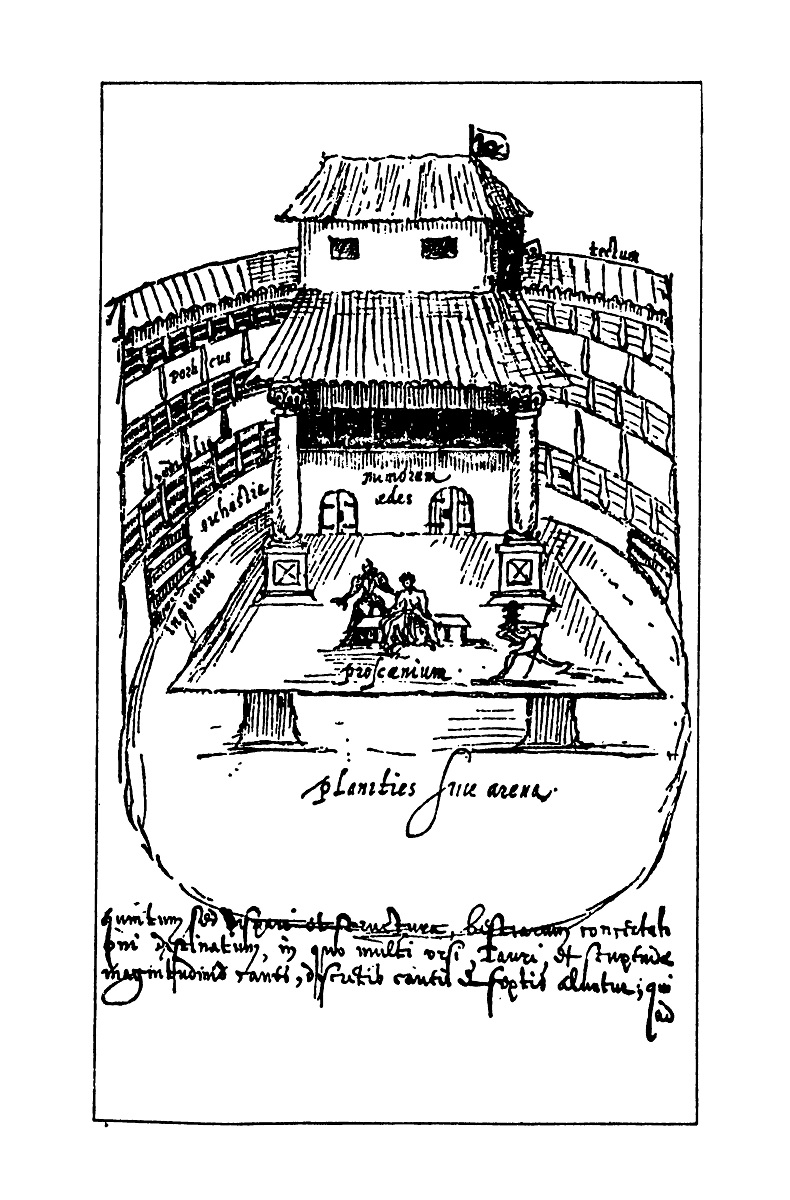 tectum
porticus
sedilia
orchestra
ingressus
mimorum
ædes
proscænium.
planities siue arena.
quintum sed dispari et structura, bestiarum concertati
oni destinatum, in quo multi ursi, Tauri, et stupendæ
magnitudinis canes, discretis caueis et septis aluntur, qui
ad